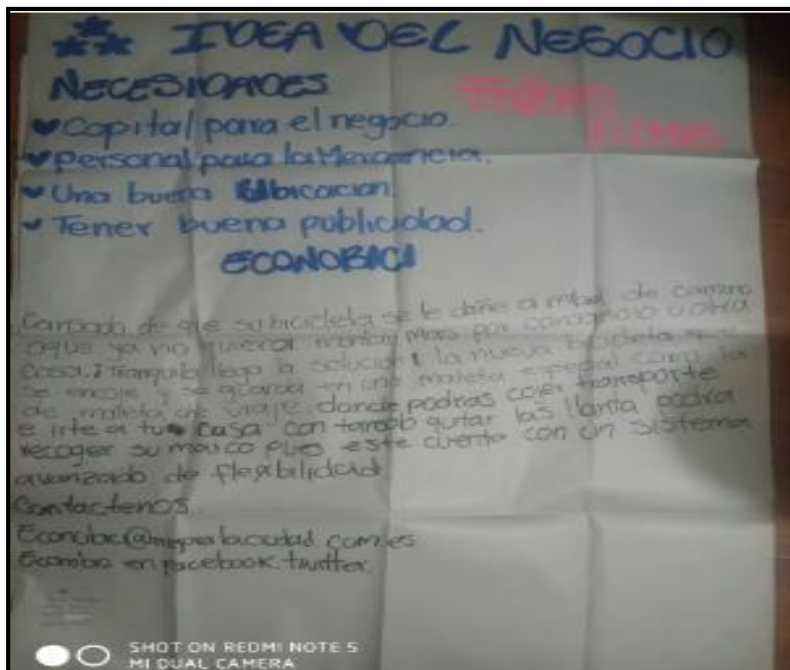 IDEA DEL NEGOCIO
NECESIDADES
Capital para el negocio.
personal para la Mercancia.
Una buena Ubicacion.
Tener buena publicidad.
ECONOBICI
Cansado de que su bicicleta se le dañe a mitad de camino
o que ya no quiera montar mas por cansancio u otra
cosa. ¡Tranquilo llego la solucion! la nueva bicicleta que
se encoje y se guarda en una maleta especial como la
de maleta de viaje donde podras cojer transporte
e irte a tu casa con tambb quitar las llanta podra
recoger su marco pues este cuenta con un sistema
avanzado de flexibilidad
Contactenos.
Econobici en facebook. twitter.
SHOT ON REDMI NOTE 5
MI DUAL CAMERA